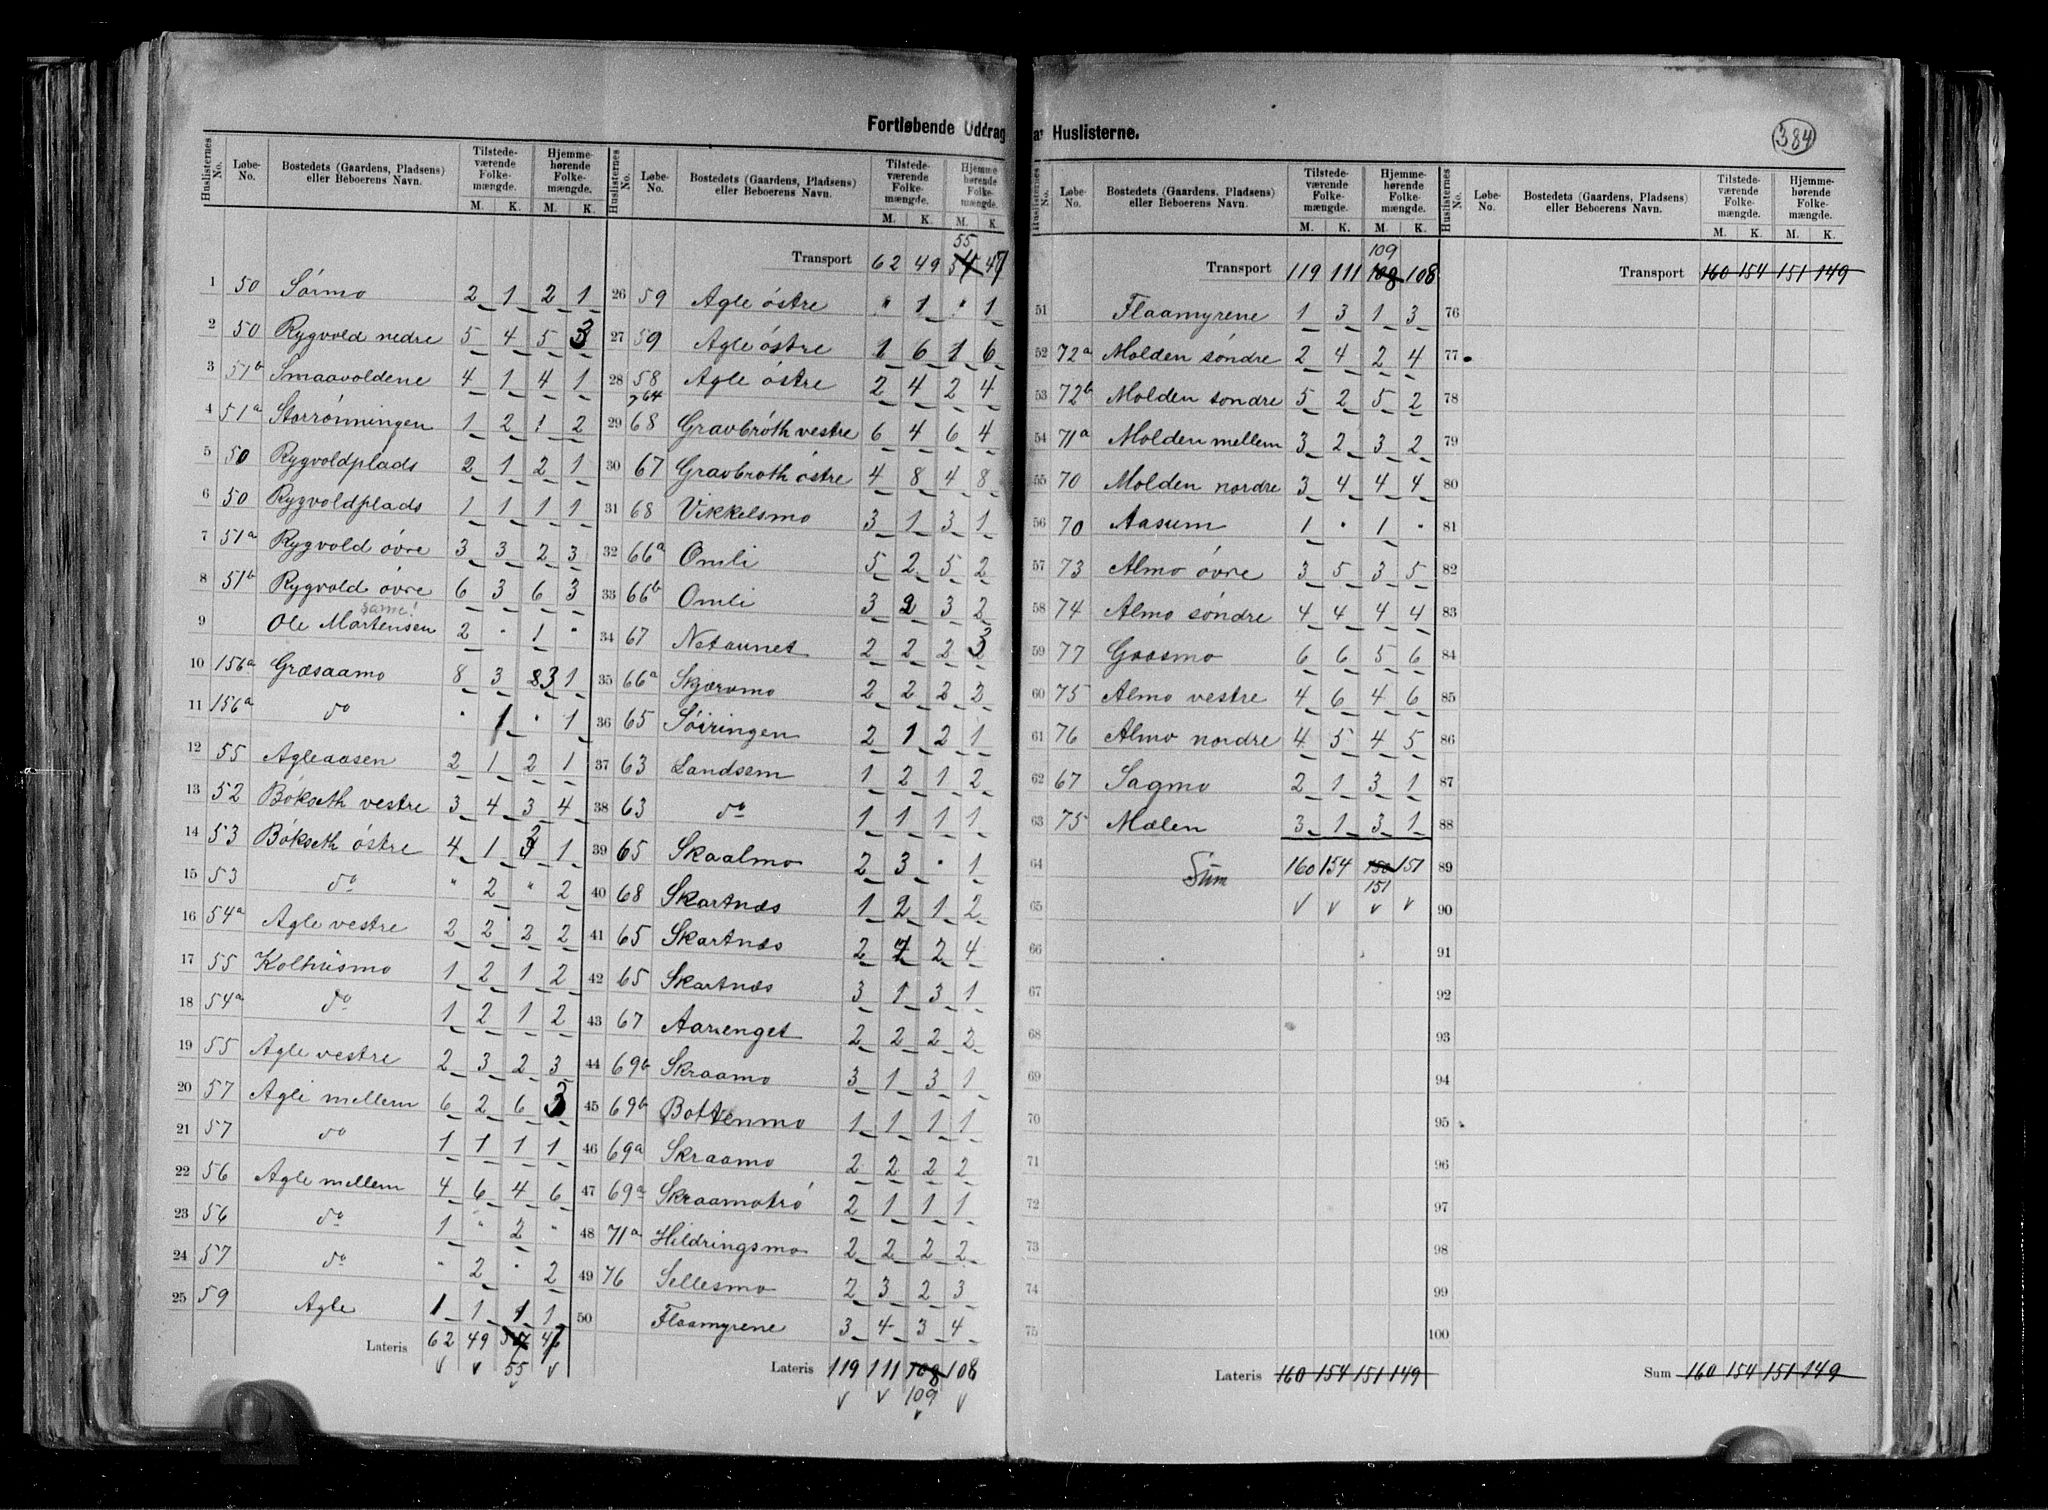 Fortløbende Uddrag av Huslisterne.
384
Huslisternes No. Løbe-No. Bostedets (Gaardens, Pladsens) eller Beboerens Navn. Tilstede-værende Folke-mængde. M. K. Hjemme-hørende Folke-mængde. M. K.
1 50 Sörmo 2 1 2 1
2 50 Rygvold nedre 5 4 5 3
3 51b Smaavoldene 4 1 4 1
4 51a Storrönningen 1 2 1 2
5 50 Rygvoldplads 2 1 2 1
6 50 Rygvoldplads 1 1 1 1
7 51a Rygvold övre 3 3 2 3
8 51b Rygvold övre 6 3 6 3
same!
9 Ole Martensen 2 " 1 "
10 156a Græsaamo 8 3 8 3 1
11 156a do " 1 " 1
12 55 Agleaasen 2 1 2 1
13 52 Bökseth vestre 3 4 3 4
14 53 Bökseth östre 4 1 3 1
15 53 do " 2 " 2
16 54a Agle vestre 2 2 2 2
17 55 Kolhusmo 1 2 1 2
18 54a do 1 2 1 2
19 55 Agle vestre 2 3 2 3
20 57 Agle mellem 6 2 6 3
21 57 do 1 1 1 1
22 56 Agle mellem 4 6 4 6
23 56 do 1 " 2 "
24 57 do " 2 " 2
25 59 Agle 1 1 1 1
Lateris 62 49 47
55
Huslisternes No. Løbe-No. Bostedets (Gaardens, Pladsens) eller Beboerens Navn. Tilstede-værende Folke-mængde. M. K. Hjemme-hørende Folke-mængde. M. K.
55
Transport 62 49 54 47
26 59 Agle östre " 1 " 1
27 59 Agle östre 1 6 1 6
28 58 Agle östre 2 4 2 4
264
29 68 Gravbröth vestre 6 4 6 4
30 67 Gravbroth östre 4 8 4 8
31 68 Vikkelsmo 3 1 3 1
32 66a Omli 5 2 5 2
33 66b Omli 3 2 3 2
34 67 Nataunet 2 2 2 3
35 66a Skjærvmo 2 2 2 2
36 65 Söiringen 2 1 2 1
37 63 Landsem 1 2 1 2
38 63 do 1 1 1 1
39 65 Skaalmo 2 3 " 1
40 68 Skartnæs 1 2 1 2
41 65 Skartnæs 2 7 2 4
42 65 Skartnæs 3 1 3 1
43 67 Aarenget 2 2 2 2
44 69b Skraamo 3 1 3 1
45 69b Bottenmo 1 1 1 1
46 69a Skraamo 2 2 2 2
47 69a Skraamotrö 2 1 1 1
48 71a Hildringsmo 2 2 2 2
49 76 Sellesmo 2 3 2 3
50 Flaamyrene 3 4 3 4
Lateris 119 111 108 108
109
Huslisternes No. Løbe-No. Bostedets (Gaardens, Pladsens) eller Beboerens Navn. Tilstede-værende Folke-mængde. M. K. Hjemme-hørende Folke-mængde. M. K.
109
Transport 119 111 108 108
51 Flaamyrene 1 3 1 3
52 72a Molden söndre 2 4 2 4
53 72b Molden söndre 5 2 5 2
54 71a Molden mellem 3 2 3 2
55 70 Molden nordre 3 4 4 4
56 70 Aasum 1 " 1 "
57 73 Almo övre 3 5 3 5
58 74 Almo söndre 4 4 4 4
59 77 Goosmo 6 6 5 6
60 75 Almo vestre 4 6 4 6
61 76 Almo nordre 4 5 4 5
62 67 Sagmo 2 1 3 1
63 75 Mælen 3 1 3 1
64 Sum 160 154 150 151
151
65
66
67
68
69
70
71
72
73
74
75
Lateris 160 154 151 149
Huslisternes No. Løbe-No. Bostedets (Gaardens, Pladsens) eller Beboerens Navn. Tilstede-værende Folke-mængde. M. K. Hjemme-hørende Folke-mængde. M. K.
Transport 160 154 151 149
76
77
78
79
80
81
82
83
84
85
86
87
88
89
90
91
92
93
94
95
96
97
98
99
100
Sum 160 154 151 149